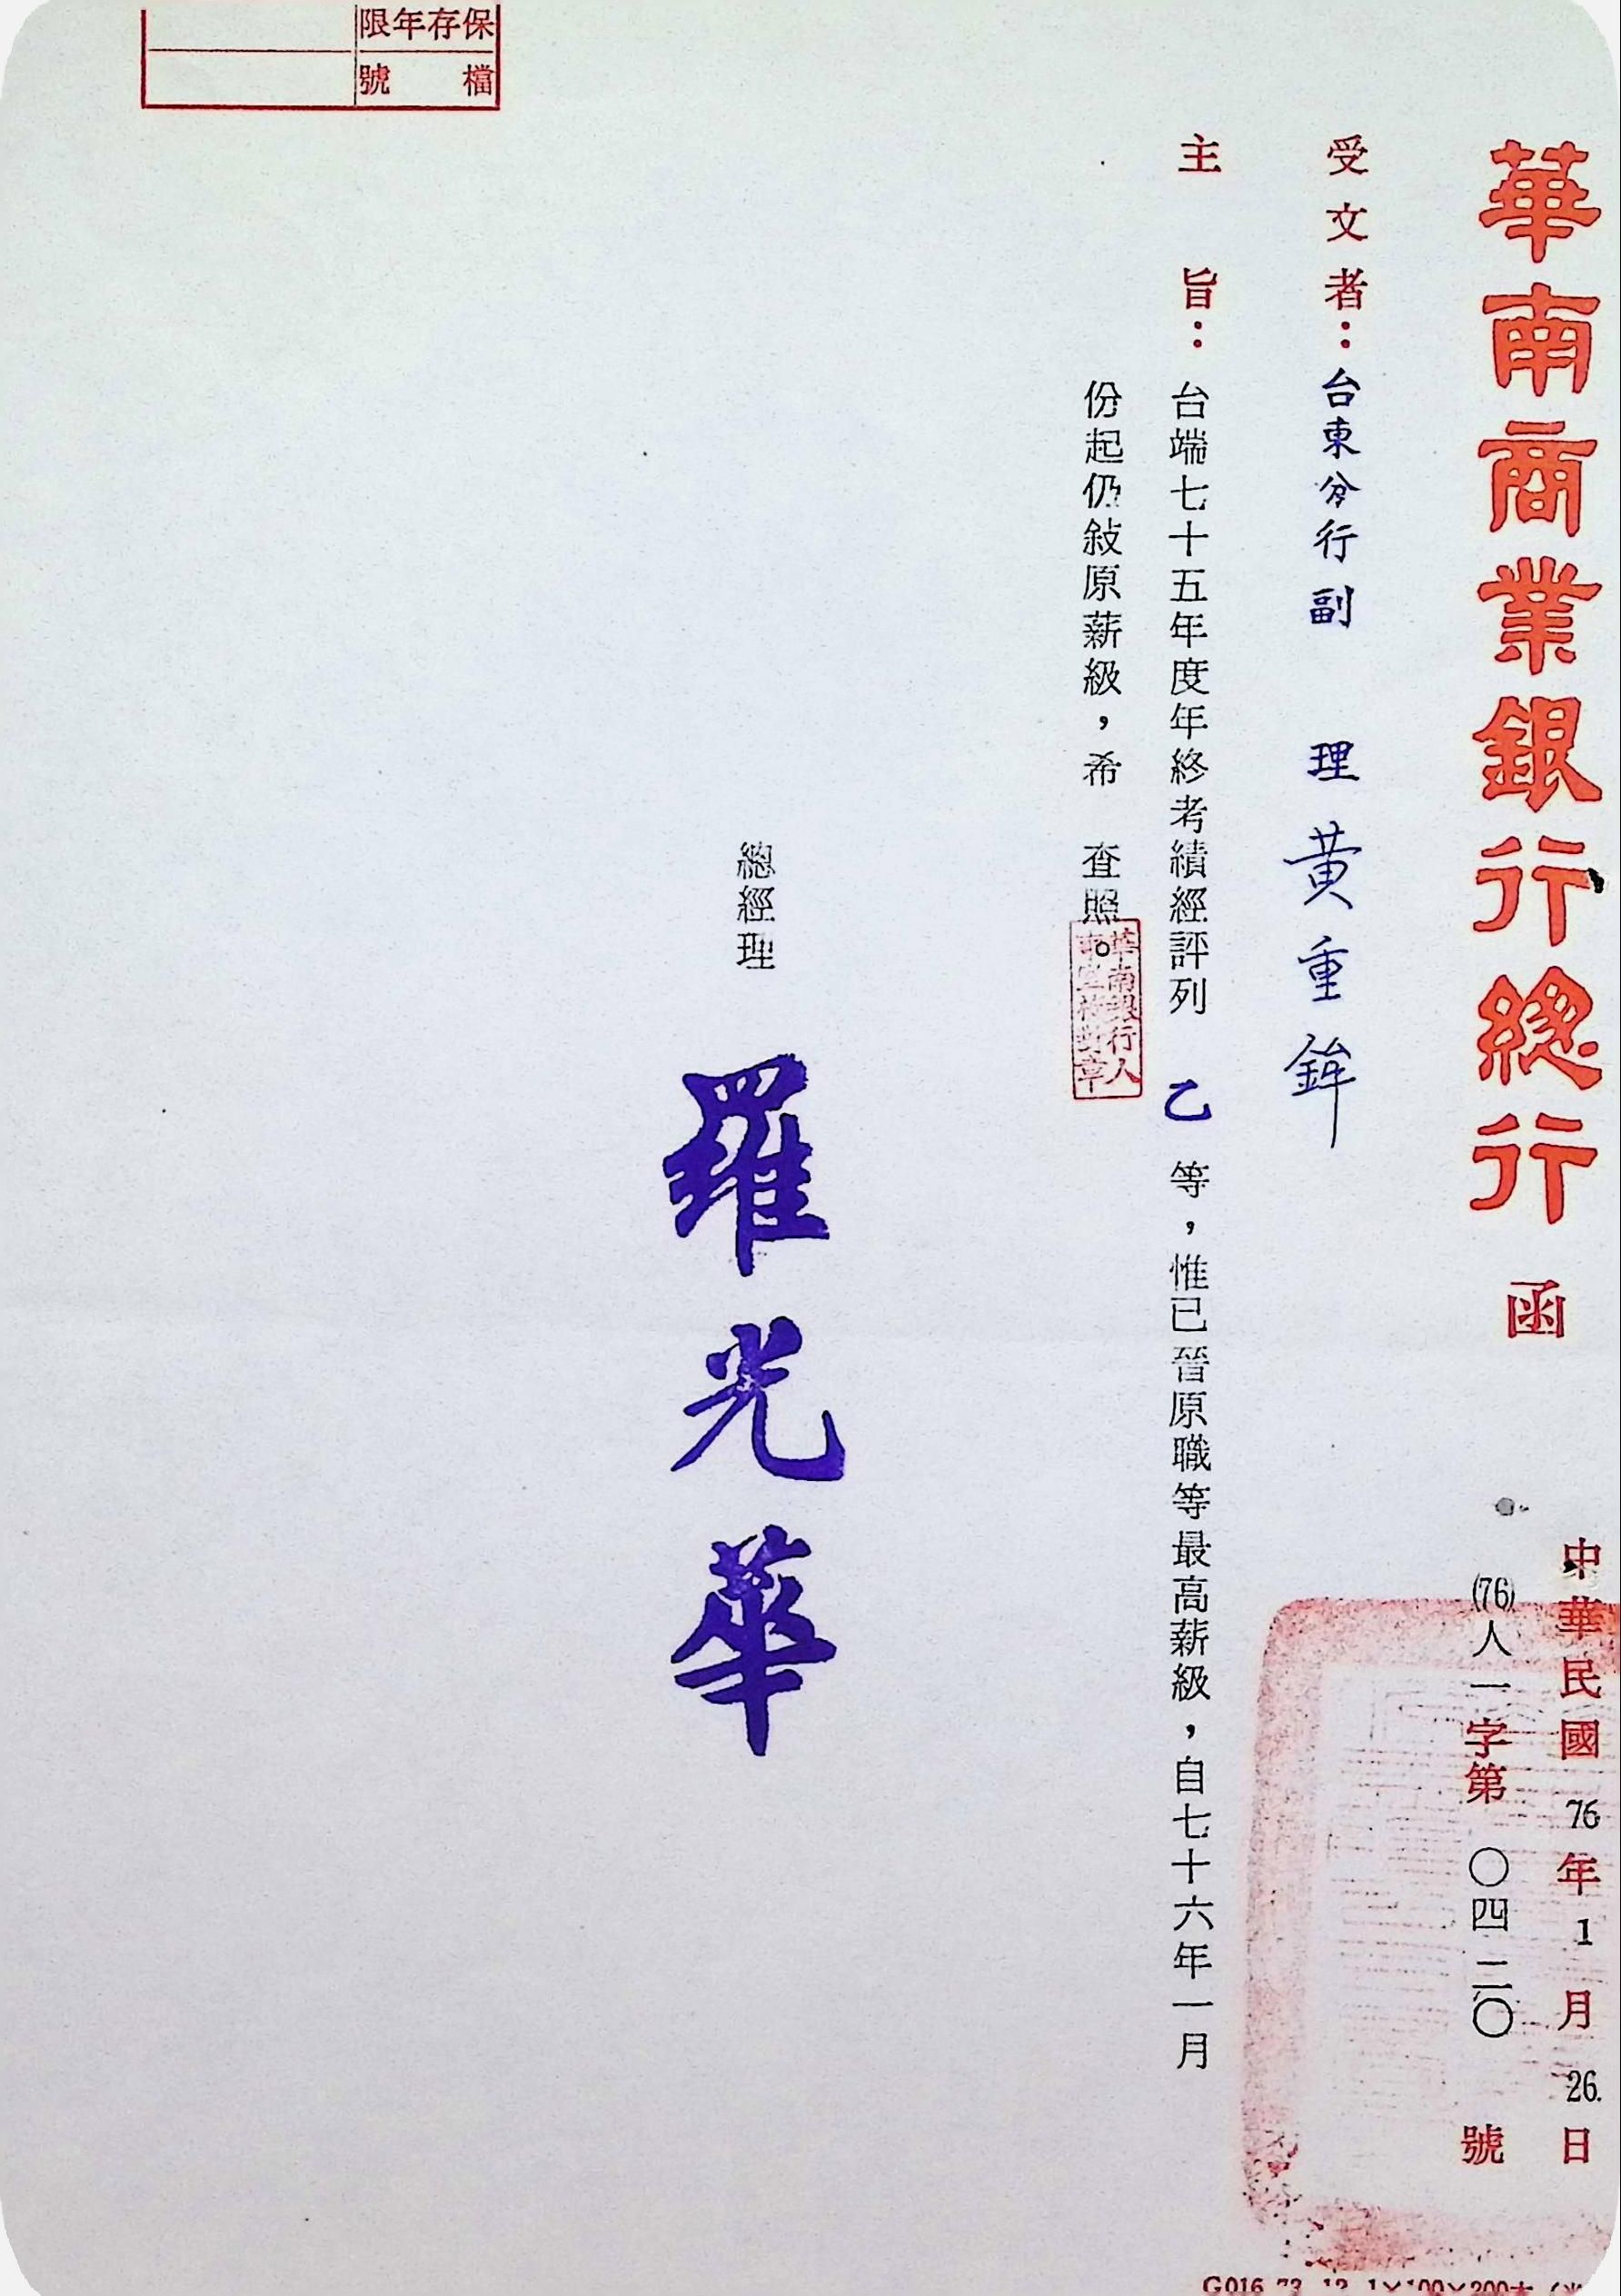 華南商業銀行總行 函
中華民國76年1月26.日
(76)人一字第〇四二〇號
受文者：台東分行副 理 黃重鉾
主 旨：台端七十五年度年終考績經評列 乙 等，惟已晉原職等最高薪級，自七十六年一月
份起仍敍原薪級，希 查照。
華南銀行人
章
總經理 羅光華
保存年限
檔 號